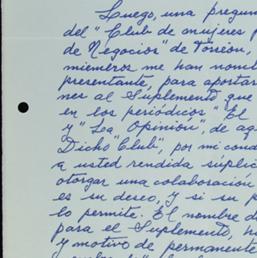 Luego, una pregun
del "Club de mujeres p
de Negocios" de Torreón,
miembros me han nombr
presentante, para aportar
nes al Suplemento que
en los periódicos "El
y "La Opinión", de ag
Dicho "Club", por mi cond
a usted rendida súplic
otorgar una colaboración
es su deseo, y si su p
lo permite. El nombre d
para el Suplemento, h
y motivo de permanente